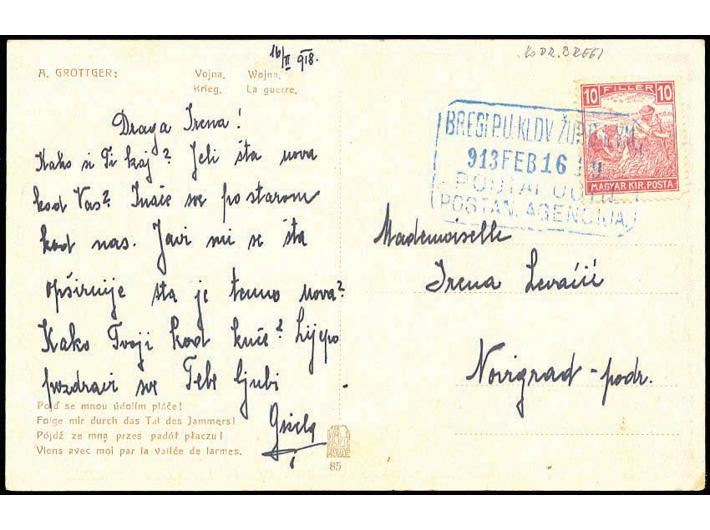 16/II 918.
Ko DR. BREGI
A. GROTTGER:
Vojna. Wojna.
Krieg. La guerre.
Draga Irena!
Kako si Ti kaj? Jeli šta nova
kod Vas? Inače sve po starom
kod nas. Javi mi se šta
opširnije šta je tamo nova?
Kako Tvoji kod kuće? Lijepo
pozdravi sve Tebe ljubi
Gizela
Pojď se mnou údolím pláče!
Folge mir durch das Tal des Jammers!
Pójdź ze mną przez padół płaczu!
Viens avec moi par la vallée de larmes.
85
BREGI P.U. KLDV. ŽUP.
913 FEB 16
POSTAI
POŠTAN. AGENCIJA
10 FILLER 10
MAGYAR KIR. POSTA
Mademoiselle
Irena Levačić
Novigrad-podr.